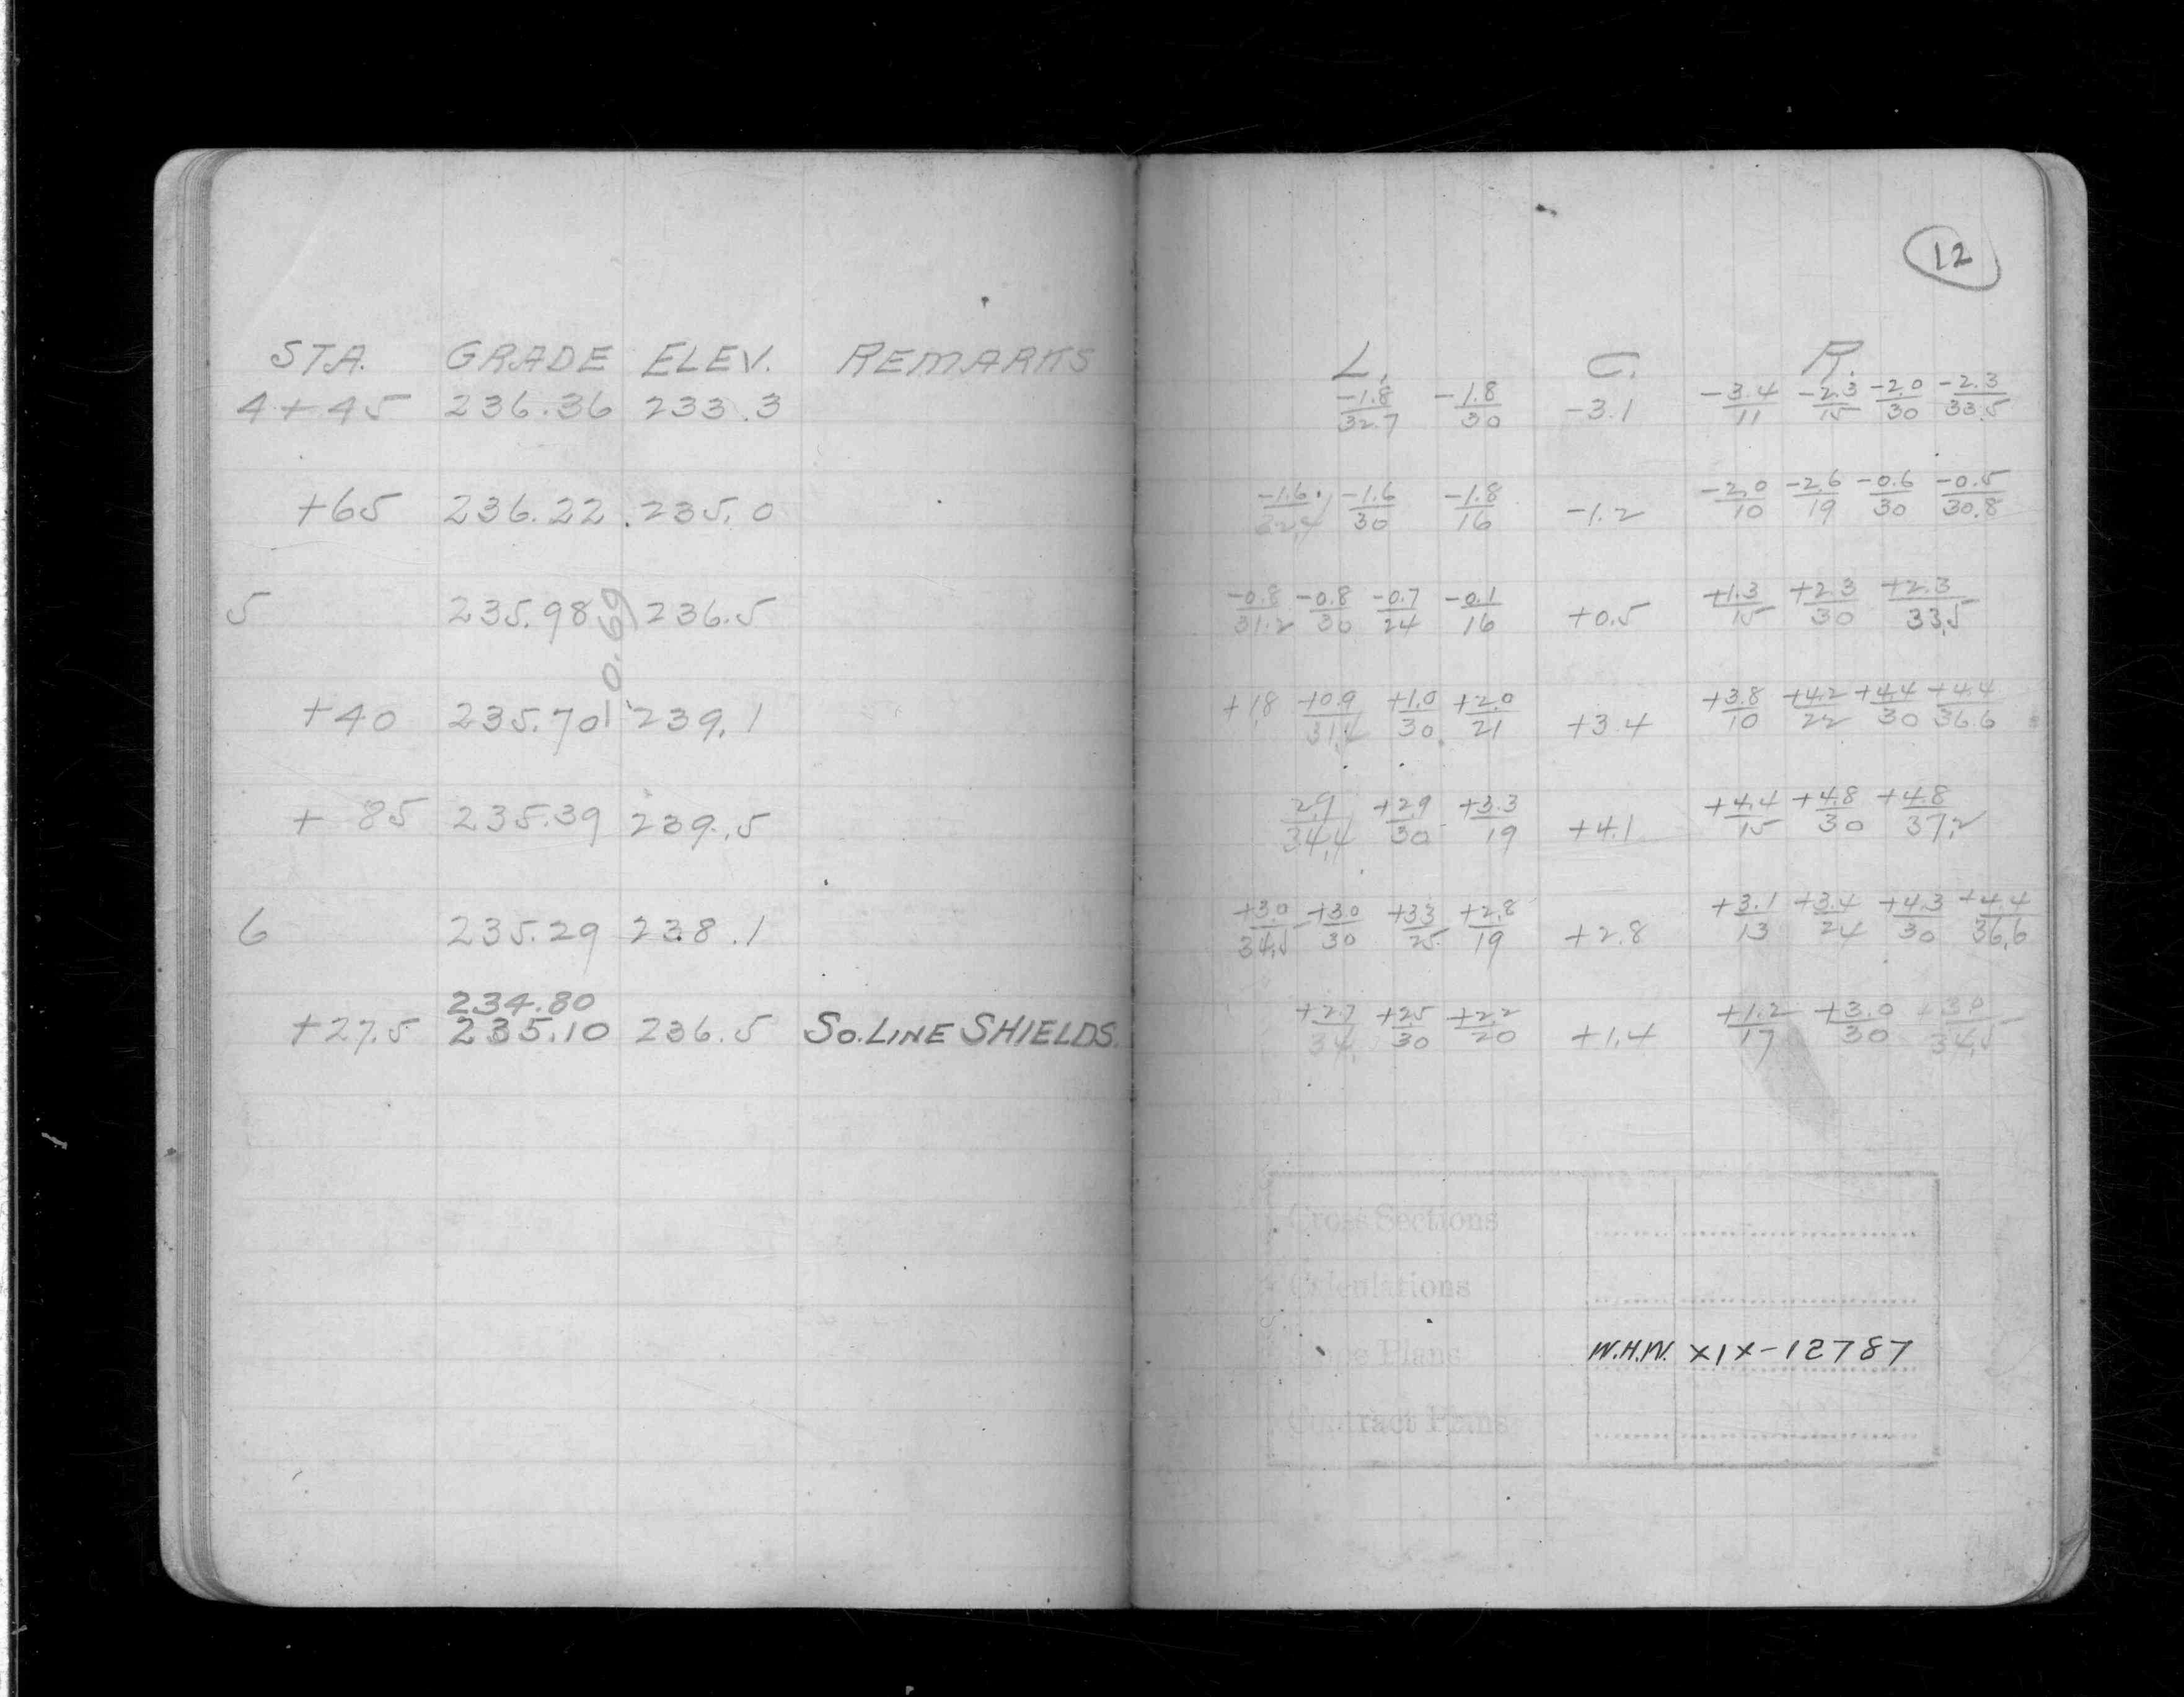 12
STA. GRADE ELEV. REMARKS L. C. R.
4+45 236.36 233.3 -1.8/32.7 -1.8/30 -3.1 -3.4/11 -2.3/15 -2.0/30 -2.3/33.5
+65 236.22 235.0 -1.6 -1.6/30 -1.8/16 -1.2 -2.0/10 -2.6/19 -0.6/30 -0.5/30.8
5 235.98 236.5 -0.8/31.2 -0.8/30 -0.7/24 -0.1/16 +0.5 +1.3/15 +2.3/30 +2.3/33.5
0.69
+40 235.70 239.1 +1.8 +0.9/31.4 +1.0/30 +2.0/21 +3.4 +3.8/10 +4.2/22 +4.4/30 +4.4/36.6
+85 235.39 239.5 2.9/34.4 +2.9/30 +3.3/19 +4.1 +4.4/15 +4.8/30 +4.8/37.2
6 235.29 238.1 +3.0/34.5 +3.0/30 +3.3/25 +2.8/19 +2.8 +3.1/13 +3.4/24 +4.3/30 +4.4/36.6
234.80
+27.5 235.10 236.5 SO. LINE SHIELDS. +2.7/34. +2.5/30 +2.2/20 +1.4 +1.2/17 +3.0/30 +3.0/34.5
Cross Sections
Calculations
Plans W.H.W. XIX-12787
Contract Plans